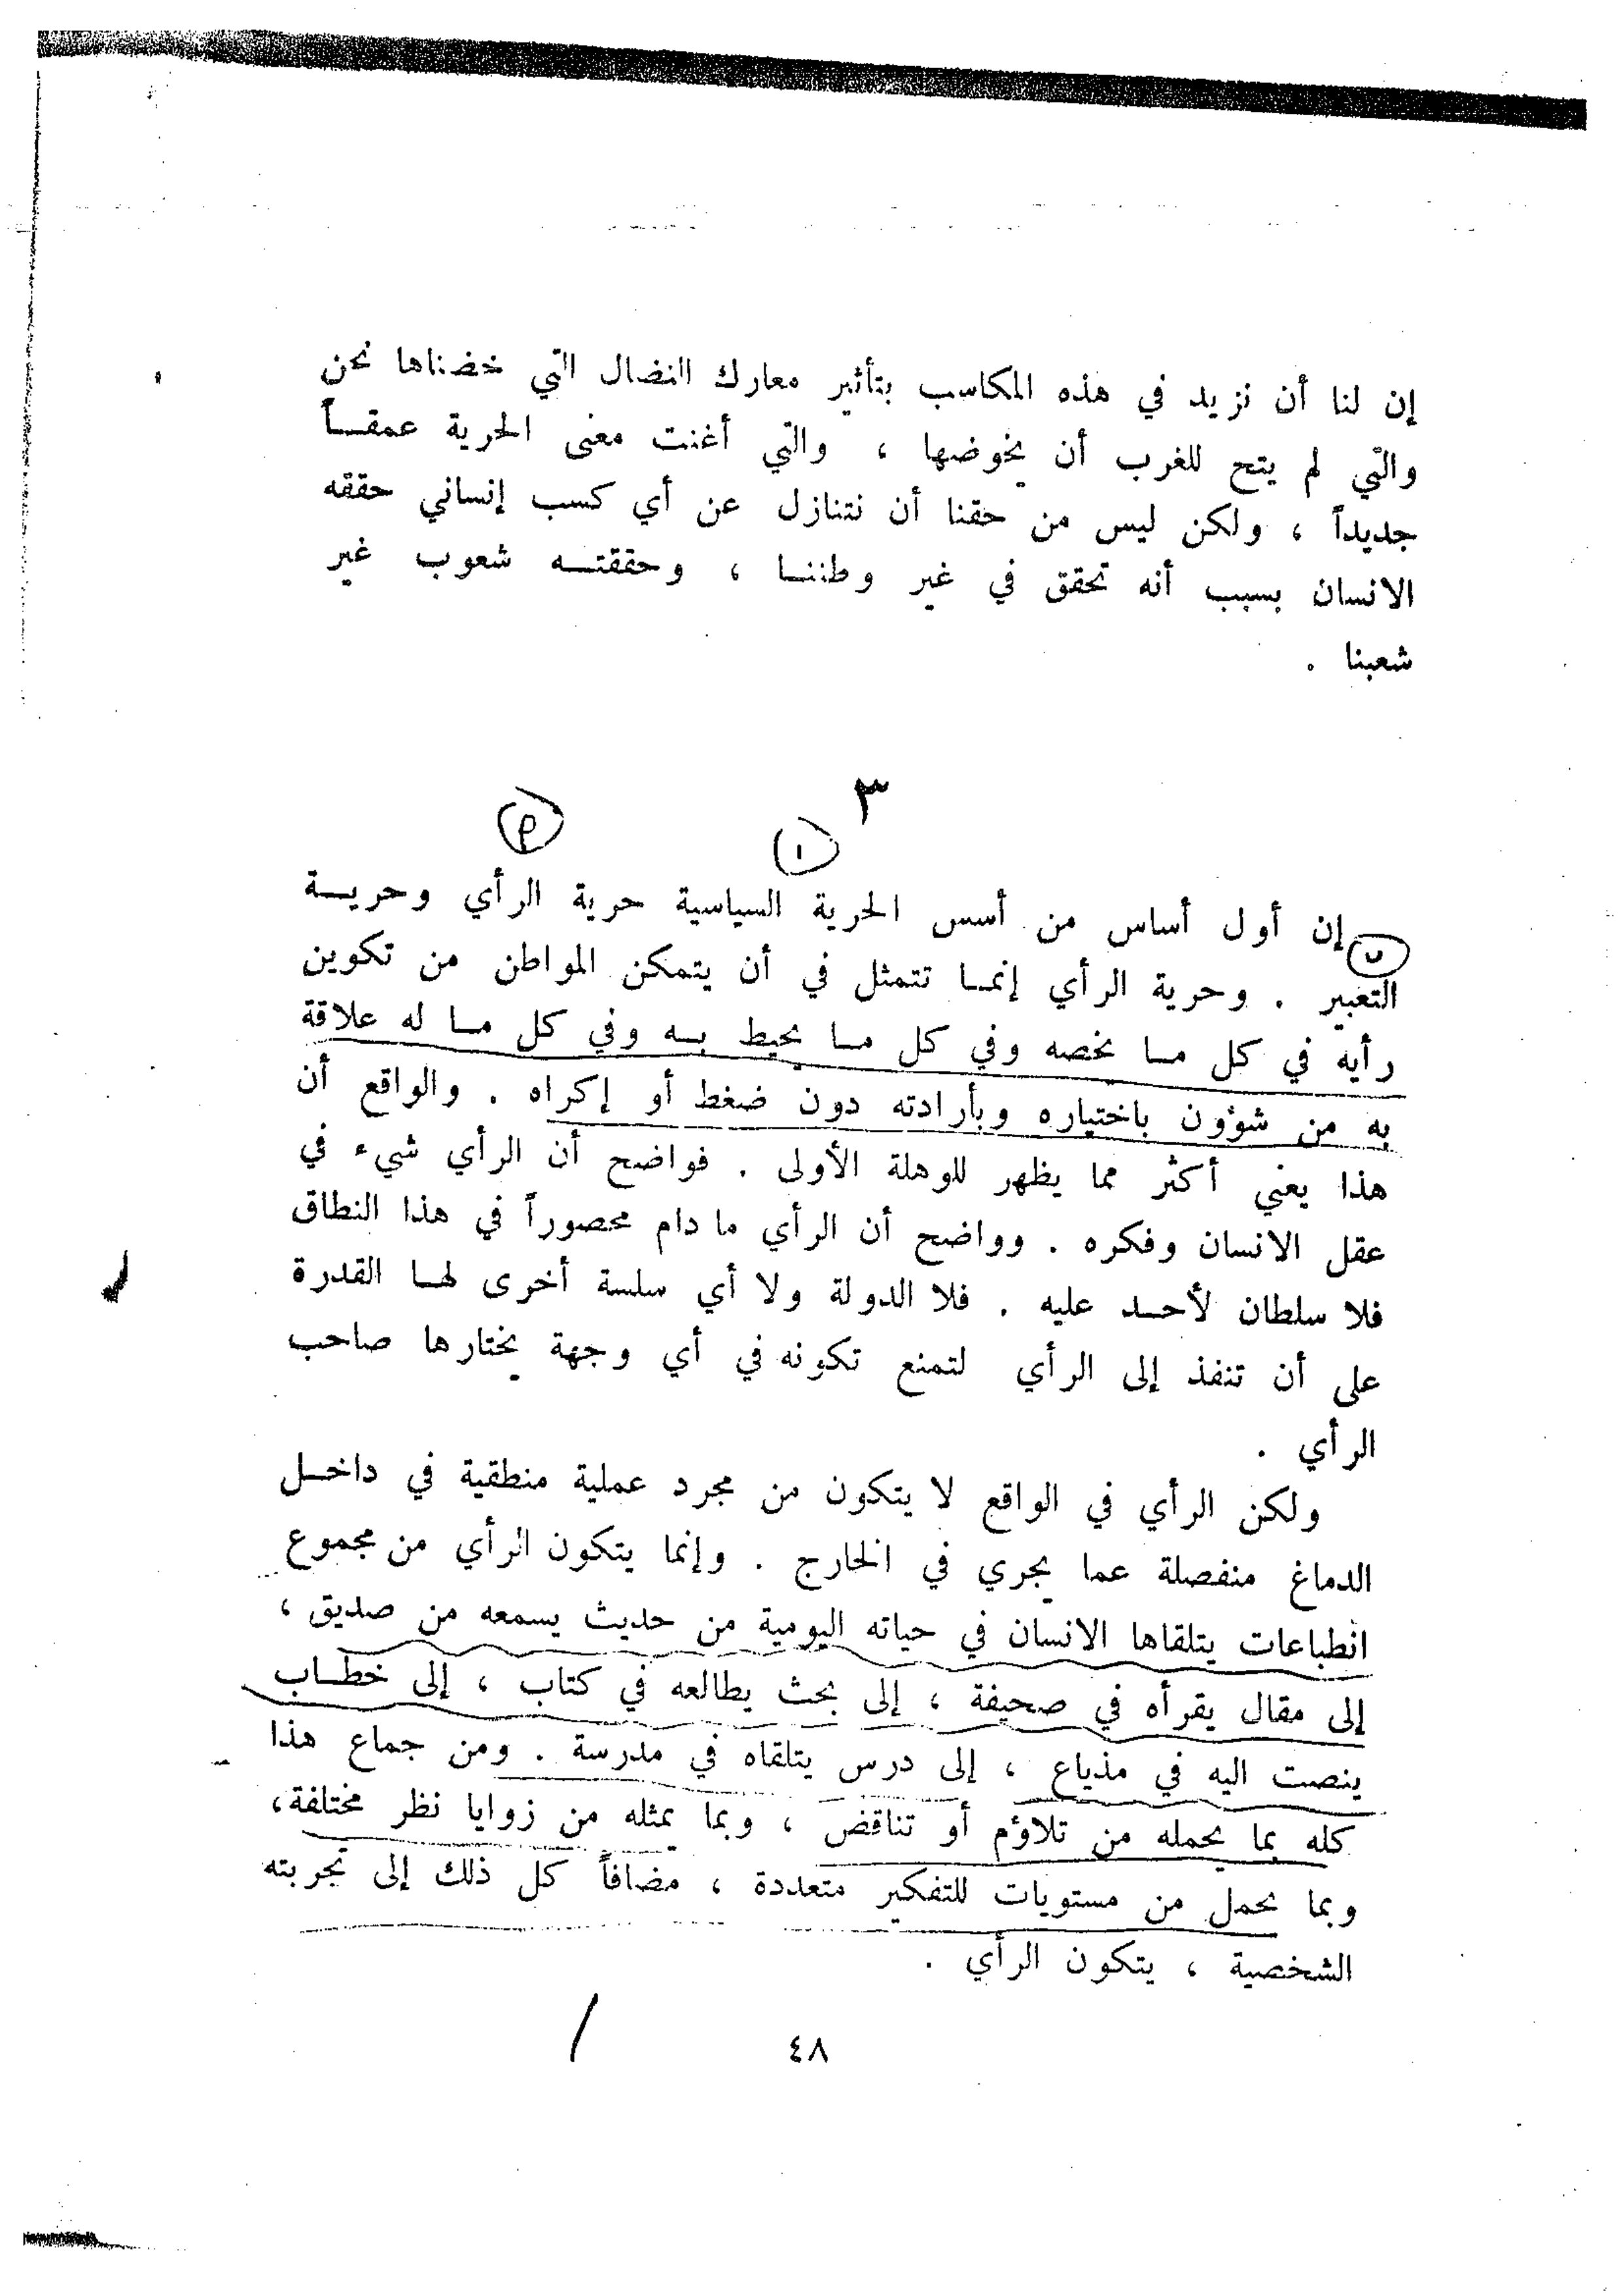 إن لنا أن نزيد في هذه المكاسب بتأثير معارك النضال التي خضناها نحن
والتي لم يتح للغرب أن يخوضها ، والتي أغنت معنى الحرية عمقــاً
جديداً ، ولكن ليس من حقنا أن نتنازل عن أي كسب إنساني حققه
الانسان بسبب أنه تحقق في غير وطننــا ، وحققتــه شعوب غير
شعبنا .
٣
١
إن أول أساس من أسس الحرية السياسية حرية الرأي وحريــة
التعبير . وحرية الرأي إنمــا تتمثل في أن يتمكن المواطن من تكوين
رأيه في كل مــا يخصه وفي كل مــا يحيط بــه وفي كل مــا له علاقة
به من شؤون باختياره وبأرادته دون ضغط أو إكراه . والواقع أن
هذا يعني أكثر مما يظهر للوهلة الأولى . فواضح أن الرأي شيء في
عقل الانسان وفكره . وواضح أن الرأي ما دام محصوراً في هذا النطاق
فلا سلطان لأحــد عليه . فلا الدولة ولا أي سلسة أخرى لهــا القدرة
على أن تنفذ إلى الرأي لتمنع تكونه في أي وجهة يختارها صاحب
الرأي .
ولكن الرأي في الواقع لا يتكون من مجرد عملية منطقية في داخــل
الدماغ منفصلة عما يجري في الخارج . وإنما يتكون الرأي من مجموع
انطباعات يتلقاها الانسان في حياته اليومية من حديث يسمعه من صديق ،
إلى مقال يقرأه في صحيفة ، إلى بحث يطالعه في كتاب ، إلى خطــاب
ينصت اليه في مذياع ، إلى درس يتلقاه في مدرسة . ومن جماع هذا
كله بما يحمله من تلاؤم أو تناقض ، وبما يمثله من زوايا نظر مختلفة،
وبما يحمل من مستويات للتفكير متعددة ، مضافاً كل ذلك إلى تجربته
الشخصية ، يتكون الرأي .
٤٨